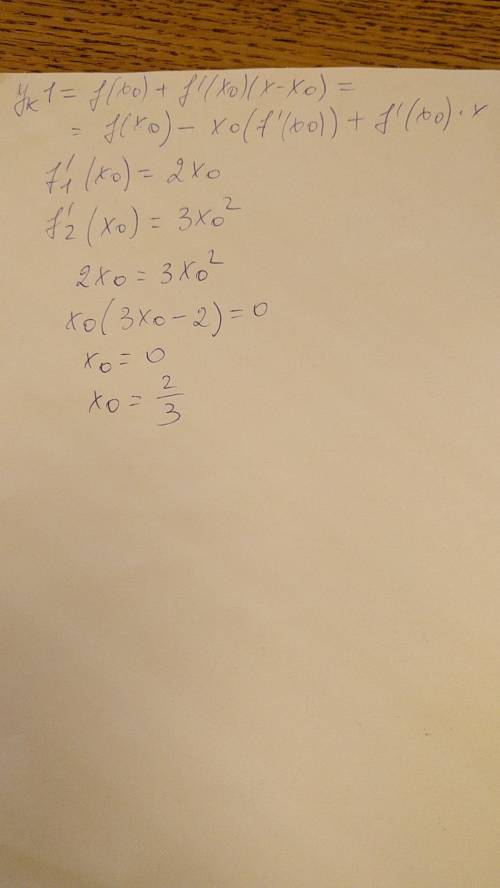 yк1 = f(x0) + f'(x0)(x-x0) =
= f(x0) - x0(f'(x0)) + f'(x0)·x
f'1(x0) = 2x0
f'2(x0) = 3x0²
2x0 = 3x0²
x0(3x0-2) = 0
x0 = 0
x0 = 2/3